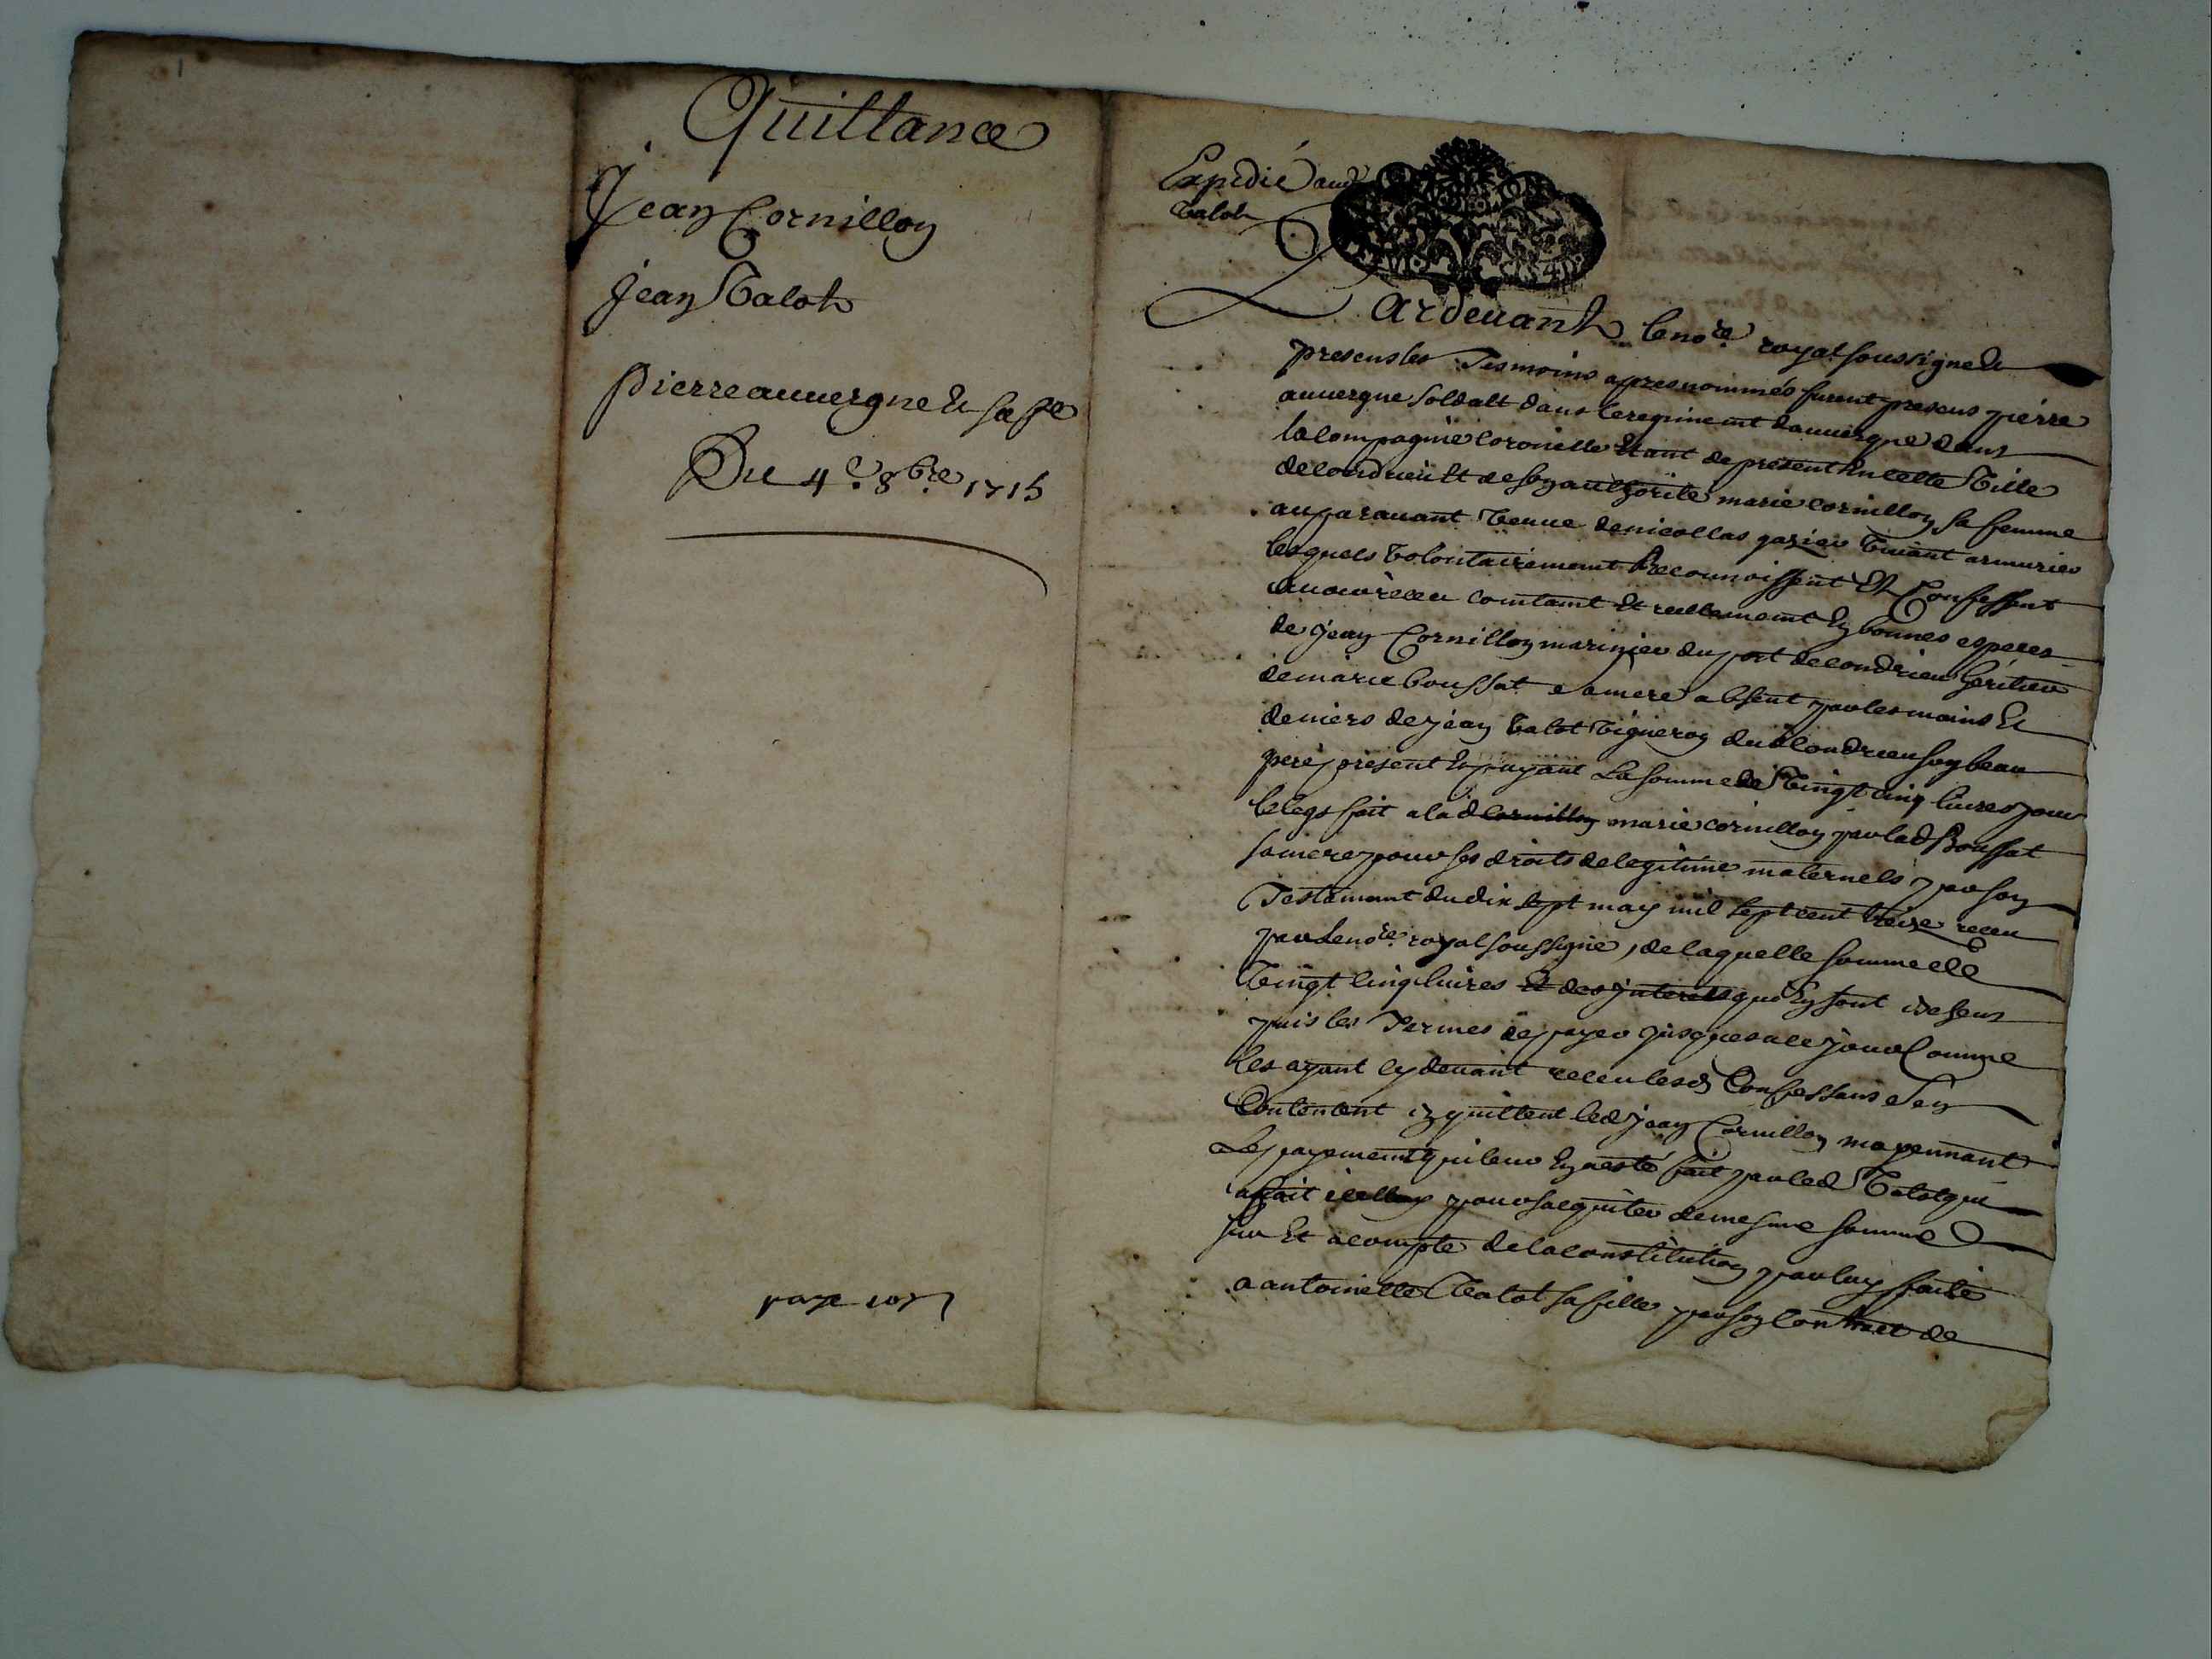 Quittance
Jean Cornillon
Jean Valot
pierre auvergne et sa fe
Du 4e 8bre 1715
Expedié aud
valot
Pardevant le nore royal soussigne et
presens les Tesmoins apres nommés furent presens pierre
auvergne soldatt dans le regiment dauvergne dans
la compagnie coronelle Etant de present En cette Ville
de condrieu Et de son authorité marie cornillon sa femme
auparavant veuve de nicollas vivant armurier
lesquels volontairement Reconnoissent Et Confessent
avoir receu comtamt Et reellememt En bonnes especes
de jean Cornillon marinier du port de condrieu heritier
de marie boussat sa mere absent par les mains Et
deniers de jean valot vigneron dud condrieu son beau
pere present Et payant La somme de Vingt cinq livres pour
le legs fait a lad cornillon marie cornillon par lad Boussat
sa mere pour ses droits de legitime maternels par son
Testamant du dix sept may mil sept cent treize receu
par le nore royal soussigne, de laquelle somme de
Vingt cinq livres Et des jnterets qui En sont
puis les Termes de payer jusques a ce jour Comme
les ayant cy devant receu lesd Confessans sen
Contentent quittent led jean Cornillon moyennant
Le payememt qui leur En a esté fait par led Valot qui
a fait pour sacquiter de mesme somme
sur Et a compte de la constitution par luy faite
a antoinette Valot sa fille par son contract de